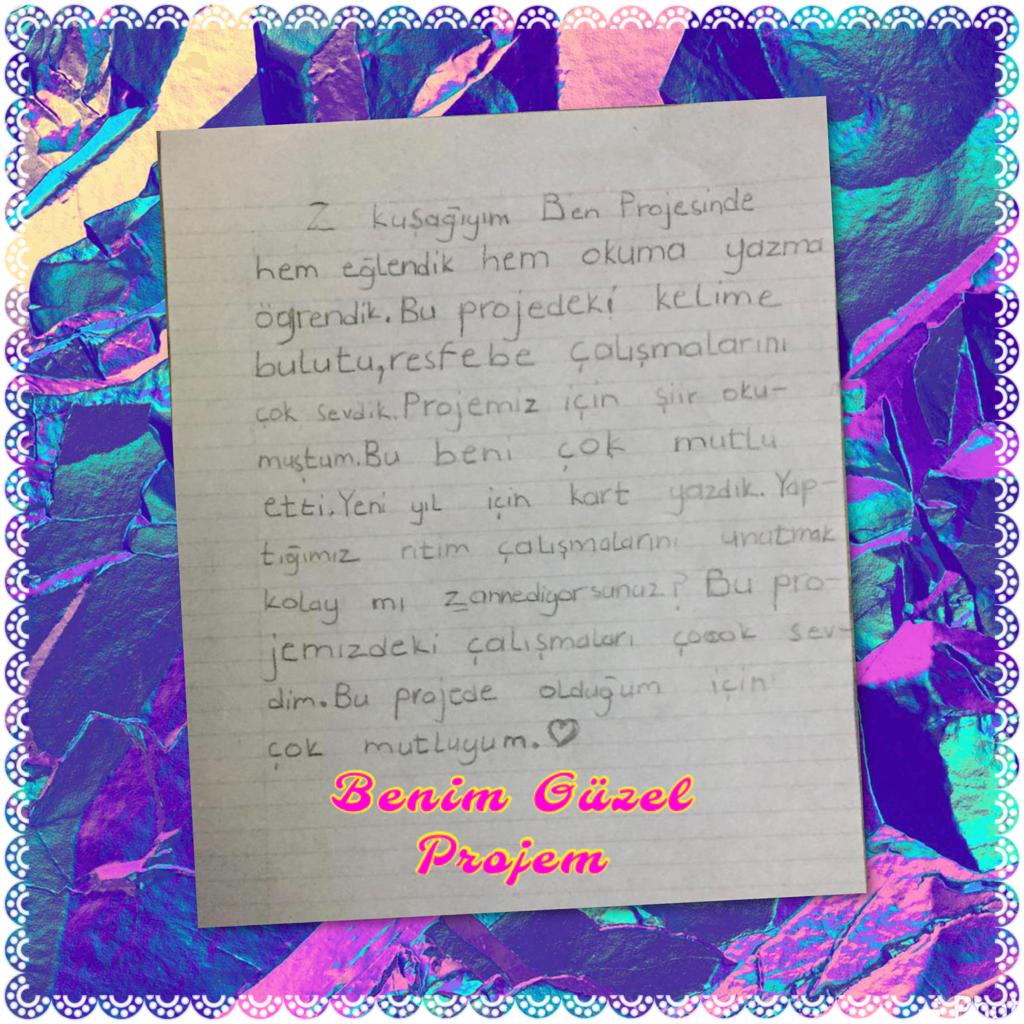 Z kuşağıyım Ben Projesinde
hem eğlendik hem okuma yazma
öğrendik. Bu projedeki kelime
bulutu, resfebe çalışmalarını
çok sevdik. Projemiz için şiir oku-
muştum. Bu beni çok mutlu
etti. Yeni yıl için kart yazdık. Yap-
tığımız ritim çalışmalarını unutmak
kolay mı zannediyorsunuz? Bu pro-
jemizdeki çalışmaları çooook sev-
dim. Bu projede olduğum için
çok mutluyum. ♡
Benim Güzel
Projem